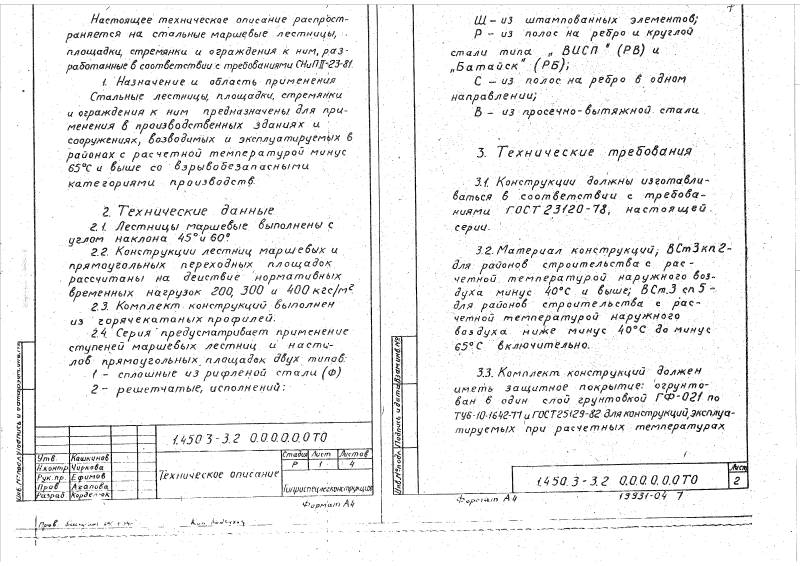 Настоящее техническое описание распрост-
раняется на стальные маршевые лестницы,
площадки, стремянки и ограждения к ним, раз-
работанные в соответствии с требованиями СНиП II-23-81.
1. Назначение и область применения
Стальные лестницы, площадки, стремянки
и ограждения к ним предназначены для при-
менения в производственных зданиях и
сооружениях, возводимых и эксплуатируемых в
районах с расчетной температурой минус
65°С и выше со взрывобезопасными
категориями производств.
2. Технические данные
2.1. Лестницы маршевые выполнены с
углом наклона 45° и 60°.
2.2. Конструкции лестниц маршевых и
прямоугольных переходных площадок
рассчитаны на действие нормативных
временных нагрузок 200, 300 и 400 кгс/м²
2.3. Комплект конструкций выполнен
из горячекатаных профилей.
2.4. Серия предусматривает применение
ступеней маршевых лестниц и насти-
лов прямоугольных площадок двух типов:
1 - сплошные из рифленой стали (Ф)
2 - решетчатые, исполнений:
1.450.3-3.2 0.0.0.0.0.0ТО
Утв. Кашкинов
Н.контр. Чиркова
Рук.пр. Ефимов
Пров.
Разраб.
Техническое описание
Стадия Лист Листов
Р 1 4
Гипроспецлегконструкция
Формат А4
Ш - из штампованных элементов;
Р - из полос на ребро и круглой
стали типа „ВИСП" (РВ) и
„Батайск" (РБ);
С - из полос на ребро в одном
направлении;
В - из просечно-вытяжной стали
3. Технические требования
3.1. Конструкции должны изготавли-
ваться в соответствии с требова-
ниями ГОСТ 23120-78, настоящей
серии.
3.2. Материал конструкций; ВСт3кп2-
для районов строительства с рас-
четной температурой наружного воз-
духа минус 40°С и выше; ВСт.3 сп5-
для районов строительства с рас-
четной температурой наружного
воздуха ниже минус 40°С до минус
65°С включительно.
3.3. Комплект конструкций должен
иметь защитное покрытие: огрунто-
ван в один слой грунтовкой ГФ-021 по
ТУ6-10-1642-77 и ГОСТ25129-82 для конструкций, эксплуа-
тируемых при расчетных температурах
Инв.№подл. Подпись и дата Взам.инв.№
1.450.3-3.2 0.0.0.0.0.0ТО
Лист
2
Формат А4
19931-04 7